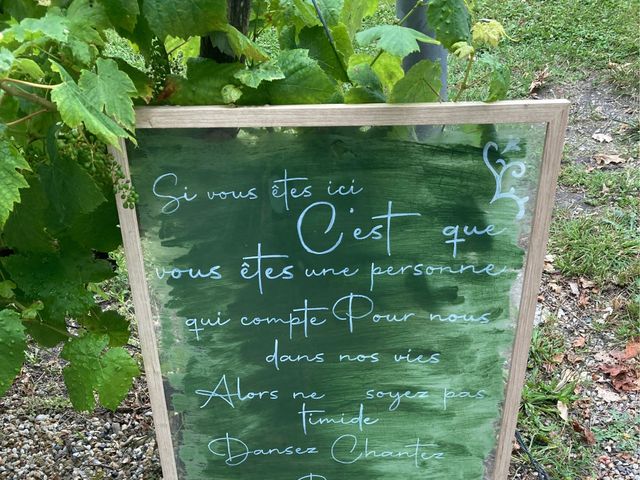 Si vous êtes ici
C'est que
vous êtes une personne
qui compte Pour nous
dans nos vies
Alors ne soyez pas
timide
Dansez Chantez